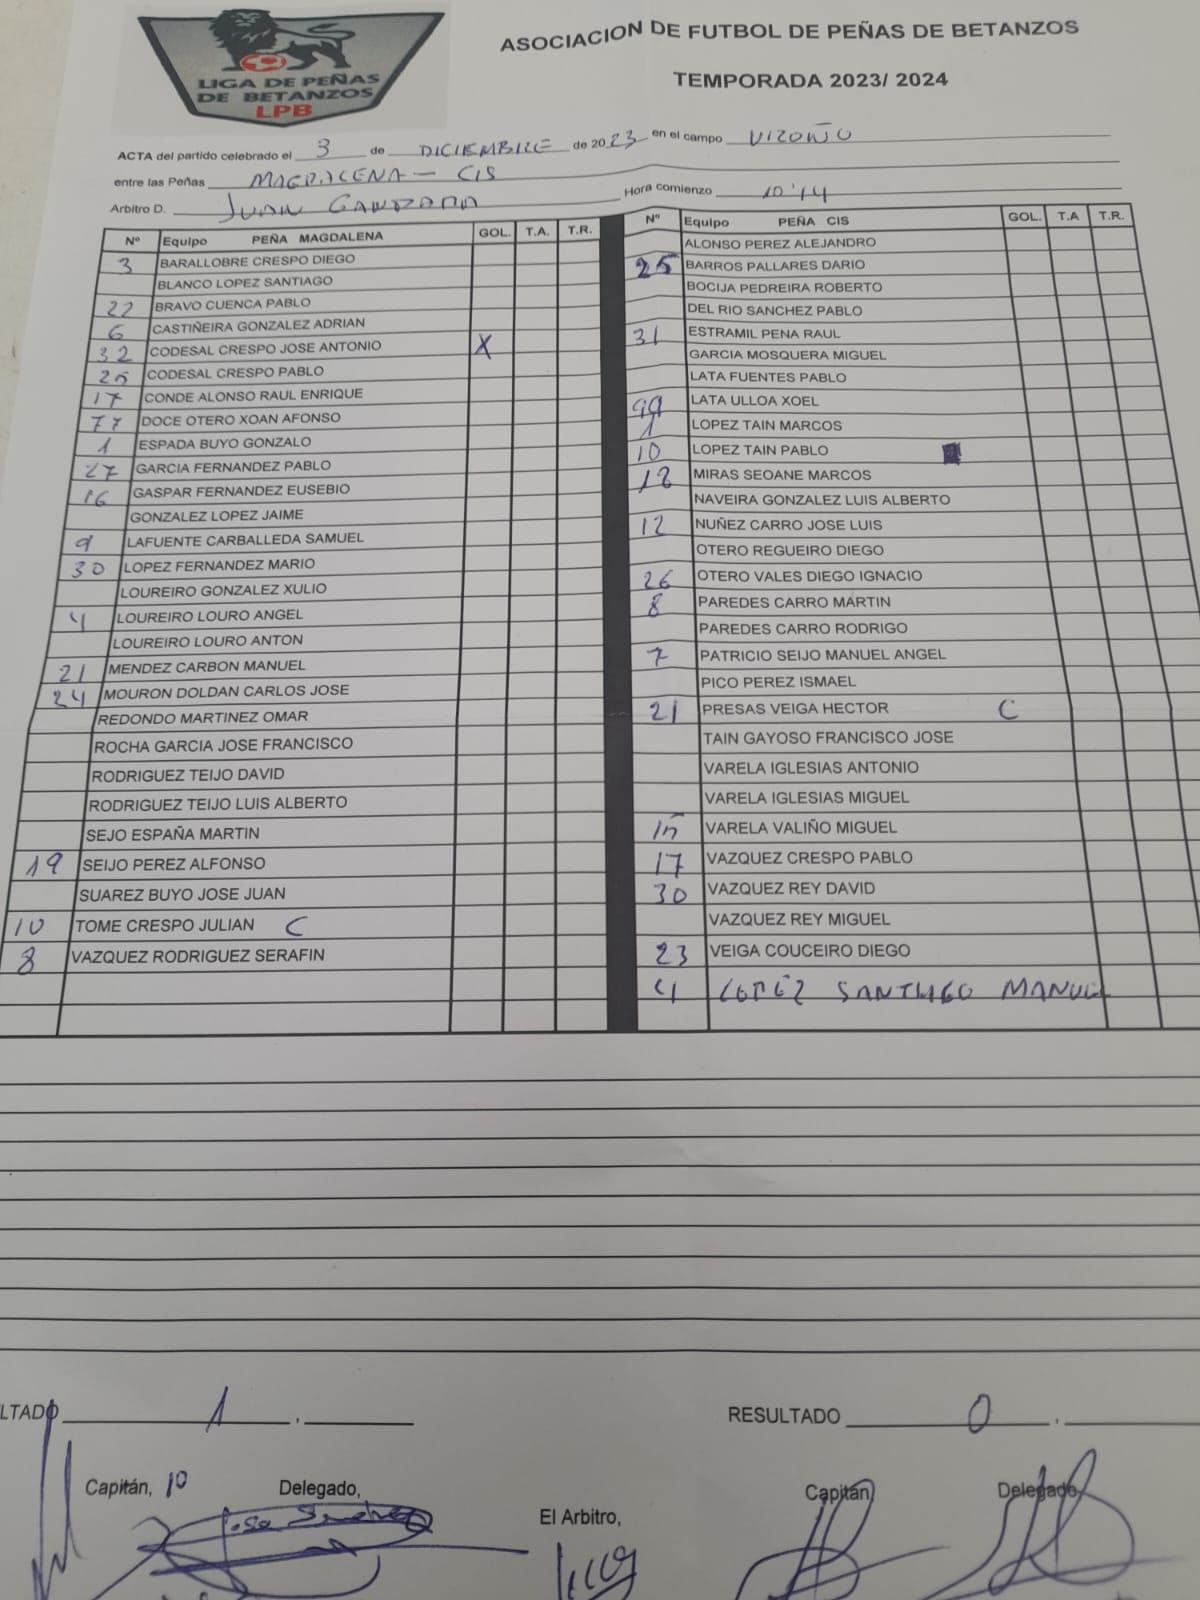 LIGA DE PEÑAS
DE BETANZOS
LPB
ASOCIACION DE FUTBOL DE PEÑAS DE BETANZOS
TEMPORADA 2023/ 2024
ACTA del partido celebrado el 3 de DICIEMBRE de 2023 en el campo VIZOÑO
entre las Peñas MAGDALENA - CIS
Hora comienzo 10'14
Arbitro D. JUAN
Nº Equipo PEÑA MAGDALENA GOL. T.A. T.R.
3 BARALLOBRE CRESPO DIEGO
BLANCO LOPEZ SANTIAGO
22 BRAVO CUENCA PABLO
6 CASTIÑEIRA GONZALEZ ADRIAN
32 CODESAL CRESPO JOSE ANTONIO X
25 CODESAL CRESPO PABLO
17 CONDE ALONSO RAUL ENRIQUE
77 DOCE OTERO XOAN AFONSO
1 ESPADA BUYO GONZALO
27 GARCIA FERNANDEZ PABLO
16 GASPAR FERNANDEZ EUSEBIO
GONZALEZ LOPEZ JAIME
9 LAFUENTE CARBALLEDA SAMUEL
30 LOPEZ FERNANDEZ MARIO
LOUREIRO GONZALEZ XULIO
4 LOUREIRO LOURO ANGEL
LOUREIRO LOURO ANTON
21 MENDEZ CARBON MANUEL
24 MOURON DOLDAN CARLOS JOSE
REDONDO MARTINEZ OMAR
ROCHA GARCIA JOSE FRANCISCO
RODRIGUEZ TEIJO DAVID
RODRIGUEZ TEIJO LUIS ALBERTO
SEJO ESPAÑA MARTIN
19 SEIJO PEREZ ALFONSO
SUAREZ BUYO JOSE JUAN
10 TOME CRESPO JULIAN C
8 VAZQUEZ RODRIGUEZ SERAFIN
Nº Equipo PEÑA CIS GOL. T.A T.R.
ALONSO PEREZ ALEJANDRO
25 BARROS PALLARES DARIO
BOCIJA PEDREIRA ROBERTO
DEL RIO SANCHEZ PABLO
31 ESTRAMIL PENA RAUL
GARCIA MOSQUERA MIGUEL
LATA FUENTES PABLO
99 LATA ULLOA XOEL
1 LOPEZ TAIN MARCOS
10 LOPEZ TAIN PABLO
18 MIRAS SEOANE MARCOS
NAVEIRA GONZALEZ LUIS ALBERTO
12 NUÑEZ CARRO JOSE LUIS
OTERO REGUEIRO DIEGO
26 OTERO VALES DIEGO IGNACIO
8 PAREDES CARRO MARTIN
PAREDES CARRO RODRIGO
7 PATRICIO SEIJO MANUEL ANGEL
PICO PEREZ ISMAEL
21 PRESAS VEIGA HECTOR C
TAIN GAYOSO FRANCISCO JOSE
VARELA IGLESIAS ANTONIO
VARELA IGLESIAS MIGUEL
15 VARELA VALIÑO MIGUEL
17 VAZQUEZ CRESPO PABLO
30 VAZQUEZ REY DAVID
VAZQUEZ REY MIGUEL
23 VEIGA COUCEIRO DIEGO
4 LOPEZ SANTIAGO MANUEL
LTADO 1 .
RESULTADO 0 .
Capitán, 10 Delegado,
El Arbitro,
Capitán Delegado